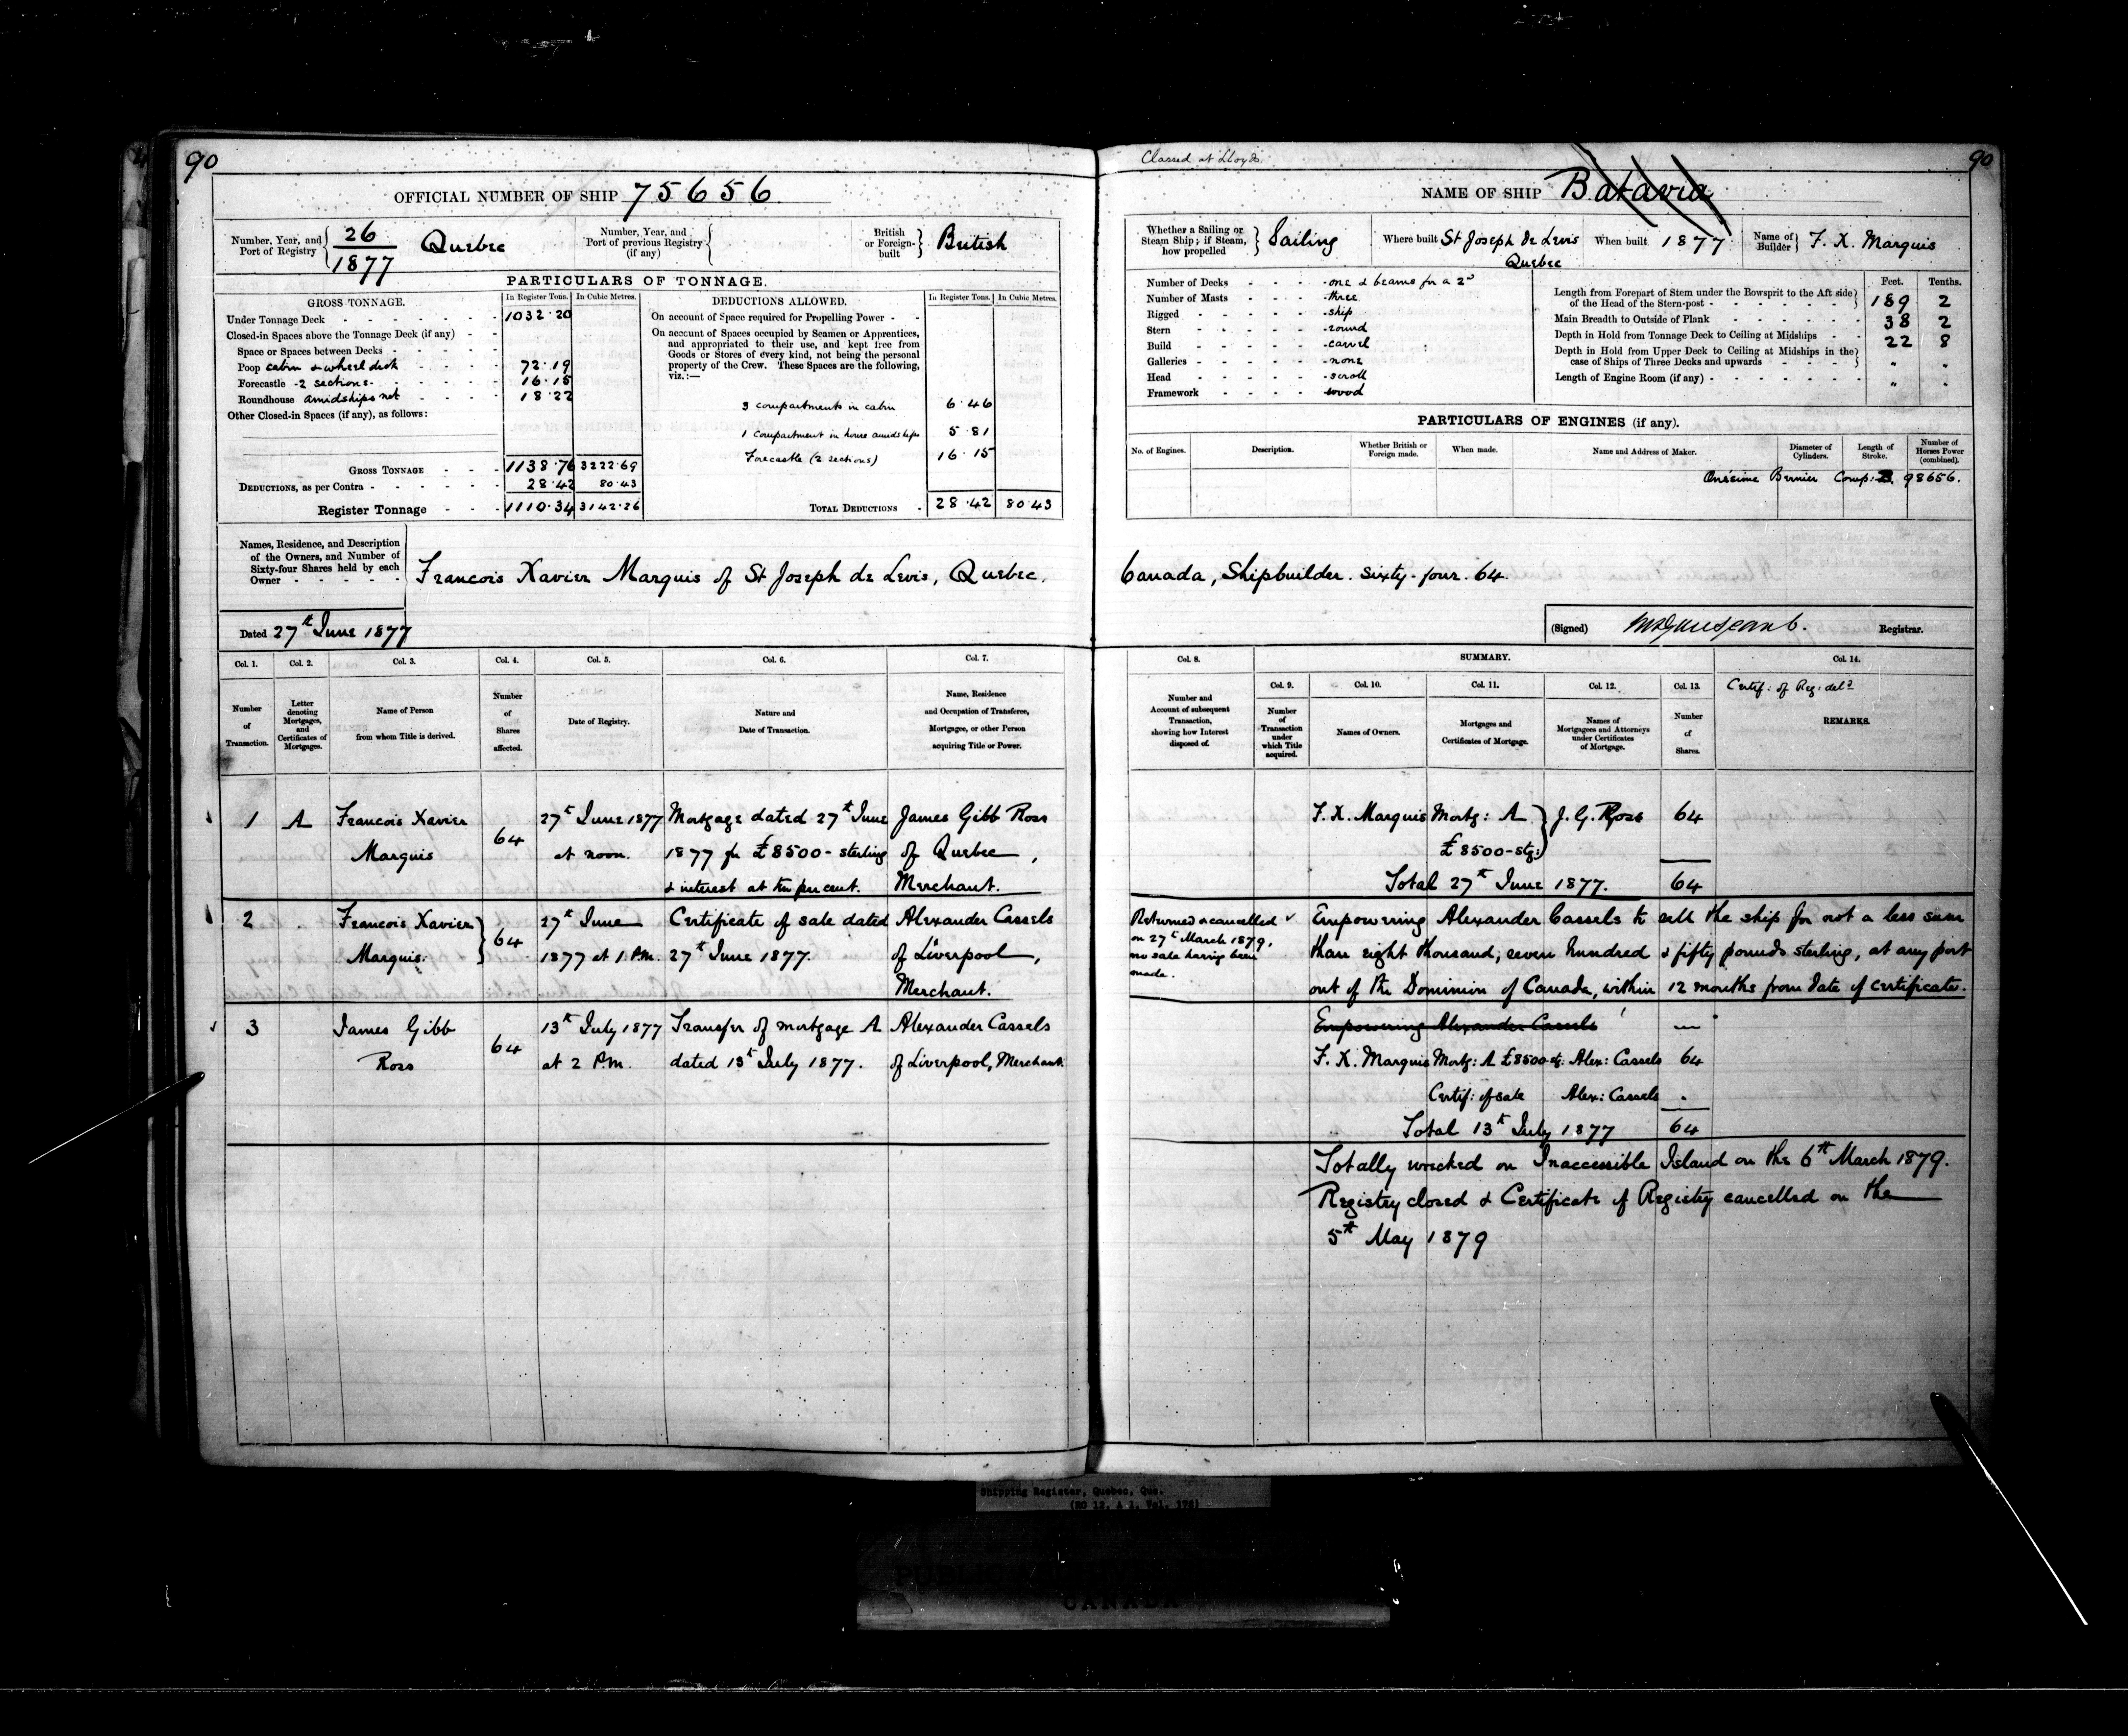 90
OFFICIAL NUMBER OF SHIP 75656.
Number, Year, and Port of Registry { 26 / 1877 Quebec
Number, Year, and Port of previous Registry (if any) {
British or Foreign-built } British
PARTICULARS OF TONNAGE.
GROSS TONNAGE. In Register Tons. In Cubic Metres.
Under Tonnage Deck - 1032.20
Closed-in Spaces above the Tonnage Deck (if any) -
Space or Spaces between Decks -
Poop cabin & wheel deck 72.19
Forecastle -2 sections- 16.15
Roundhouse amidships net 18.22
Other Closed-in Spaces (if any), as follows:
GROSS TONNAGE - 1138.76 3222.69
DEDUCTIONS, as per Contra - 28.42 80.43
Register Tonnage - 1110.34 3142.26
DEDUCTIONS ALLOWED. In Register Tons. In Cubic Metres.
On account of Space required for Propelling Power - -
On account of Spaces occupied by Seamen or Apprentices,
and appropriated to their use, and kept free from
Goods or Stores of every kind, not being the personal
property of the Crew. These Spaces are the following,
viz.:—
3 compartments in cabin 6.46
1 compartment in house amidships 5.81
Forecastle (2 sections) 16.15
TOTAL DEDUCTIONS - 28.42 80.43
Names, Residence, and Description
of the Owners, and Number of
Sixty-four Shares held by each
Owner - - - - -
Francois Xavier Marquis of St Joseph de Levis, Quebec,
Dated 27th June 1877
Col. 1. Col. 2. Col. 3. Col. 4. Col. 5. Col. 6. Col. 7.
Number of Transaction.
Letter denoting Mortgages, and Certificates of Mortgages.
Name of Person from whom Title is derived.
Number of Shares affected.
Date of Registry.
Nature and Date of Transaction.
Name, Residence and Occupation of Transferee, Mortgagee, or other Person acquiring Title or Power.
1 A Francois Xavier 64 27th June 1877 Mortgage dated 27th June James Gibb Ross
Marquis at noon. 1877 for £8500- sterling of Quebec,
& interest at ten per cent. Merchant.
2 Francois Xavier } 64 27th June Certificate of sale dated Alexander Cassels
Marquis. 1877 at 1 P.M. 27th June 1877. of Liverpool,
Merchant.
3 James Gibb 64 13th July 1877 Transfer of mortgage A Alexander Cassels
Ross at 2 P.M. dated 13th July 1877. of Liverpool, Merchant.
Classed at Lloyds
90
NAME OF SHIP Batavia
Whether a Sailing or Steam Ship; if Steam, how propelled } Sailing
Where built St Joseph de Levis Quebec
When built 1877
Name of Builder } F. X. Marquis
Number of Decks - one & beams for a 2d
Number of Masts - three
Rigged - ship
Stern - round
Build - carvel
Galleries - none
Head - scroll
Framework - wood
Feet. Tenths.
Length from Forepart of Stem under the Bowsprit to the Aft side
of the Head of the Stern-post - } 189 2
Main Breadth to Outside of Plank - 38 2
Depth in Hold from Tonnage Deck to Ceiling at Midships - 22 8
Depth in Hold from Upper Deck to Ceiling at Midships in the
case of Ships of Three Decks and upwards - } " "
Length of Engine Room (if any) - " "
PARTICULARS OF ENGINES (if any).
No. of Engines. Description. Whether British or Foreign made. When made. Name and Address of Maker. Diameter of Cylinders. Length of Stroke. Number of Horses Power (combined).
Onésime Bernier Comp: 98656.
Canada, Shipbuilder. Sixty-four. 64.
(Signed) Registrar.
Col. 8. SUMMARY. Col. 14.
Col. 9. Col. 10. Col. 11. Col. 12. Col. 13.
Number and Account of subsequent Transaction, showing how Interest disposed of.
Number of Transaction under which Title acquired.
Names of Owners.
Mortgages and Certificates of Mortgage.
Names of Mortgagees and Attorneys under Certificates of Mortgage.
Number of Shares.
Certif: of Reg: deld
REMARKS.
F. X. Marquis Mortg: A } J. G. Ross 64
£8500-stg:
Total 27th June 1877. 64
Returned & cancelled
on 27th March 1879,
no sale having been
made.
Empowering Alexander Cassels to sell the ship for not a less sum
than eight thousand, seven hundred & fifty pounds sterling, at any port
out of the Dominion of Canada, within 12 months from date of certificate.
Empowering Alexander Cassels —
F. X. Marquis Mortg: A £8500 stg: Alex: Cassels 64
Certif: of sale Alex: Cassels .
Total 13th July 1877 64
Totally wrecked on Inaccessible Island on the 6th March 1879.
Registry closed & Certificate of Registry cancelled on the
5th May 1879
Shipping Register, Quebec, Que.
(RG 12, A 1, Vol. 176)
PUBLIC
CANADA